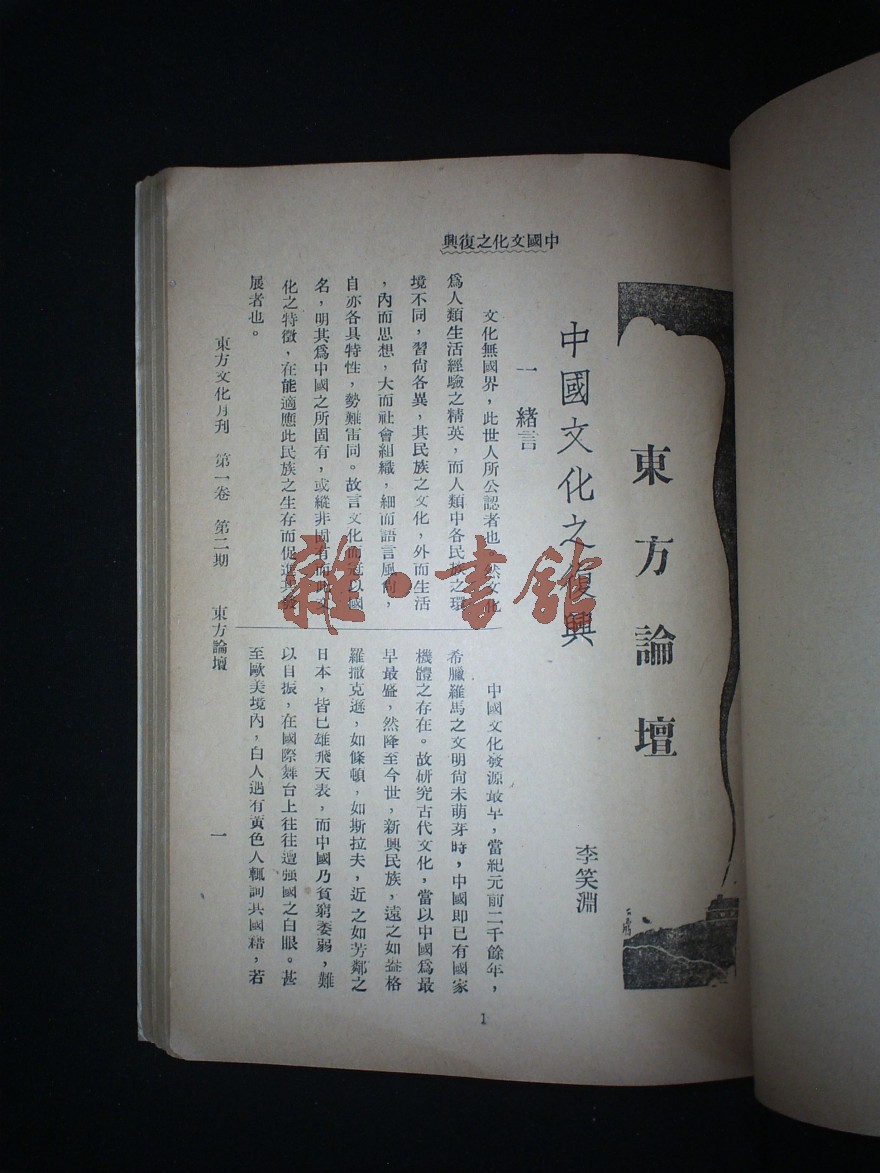 東方論壇
中國文化之復興
李笑淵
中國文化之復興
一 緒言
文化無國界,此世人所公認者也,然文化
爲人類生活經驗之精英,而人類中各民族之環
境不同,習尙各異,其民族之文化,外而生活
,內而思想,大而社會組織,細而語言風尙,
自亦各具特性,勢難雷同。故言文化而冠以國
名,明其爲中國之所固有,或縱非固有而此文
化之特徵,在能適應此民族之生存而促進其發
展者也。
中國文化發源最早,當紀元前二千餘年,
希臘羅馬之文明尙未萌芽時,中國即已有國家
機體之存在。故硏究古代文化,當以中國爲最
早最盛,然降至今世,新興民族,遠之如盎格
羅撒克遜,如條頓,如斯拉夫,近之如芳鄰之
日本,皆已雄飛天表,而中國乃貧窮委弱,難
以自振,在國際舞台上往往遭强國之白眼。甚
至歐美境內,白人遇有黃色人輒詢其國籍,若
東方文化月刊 第一卷 第二期 東方論壇 一
1
雜·書館